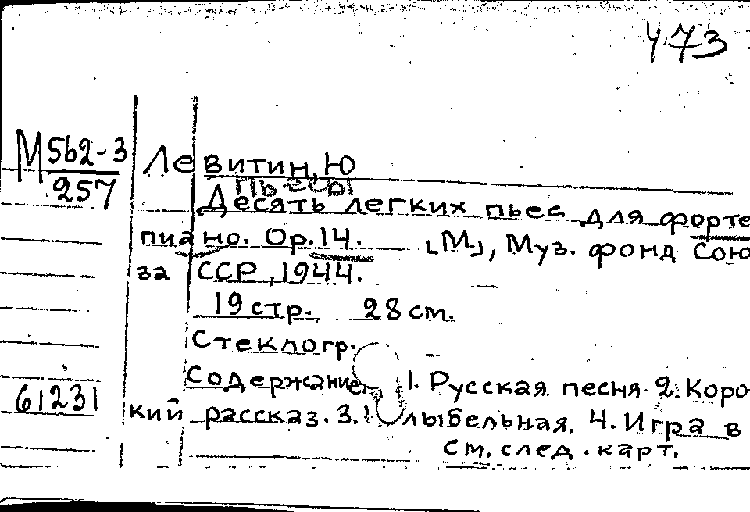 473
М 562-3
257
Левитин, Ю
Пьесы
Десять легких пьес для форте
пиано. Ор. 14. [М], Муз. фонд Сою
за ССР, 1944.
19 стр. 28 см.
Стеклогр.
Содержание: 1. Русская песня. 2. Коро
61231
кий рассказ. 3. лыбельная. 4. Игра в
См. след. карт.